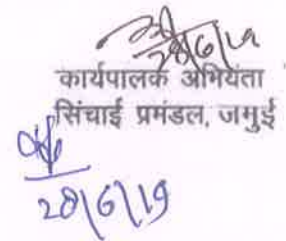 28/6/19
कार्यपालक अभियंता
सिंचाई प्रमंडल, जमुई
28/6/19